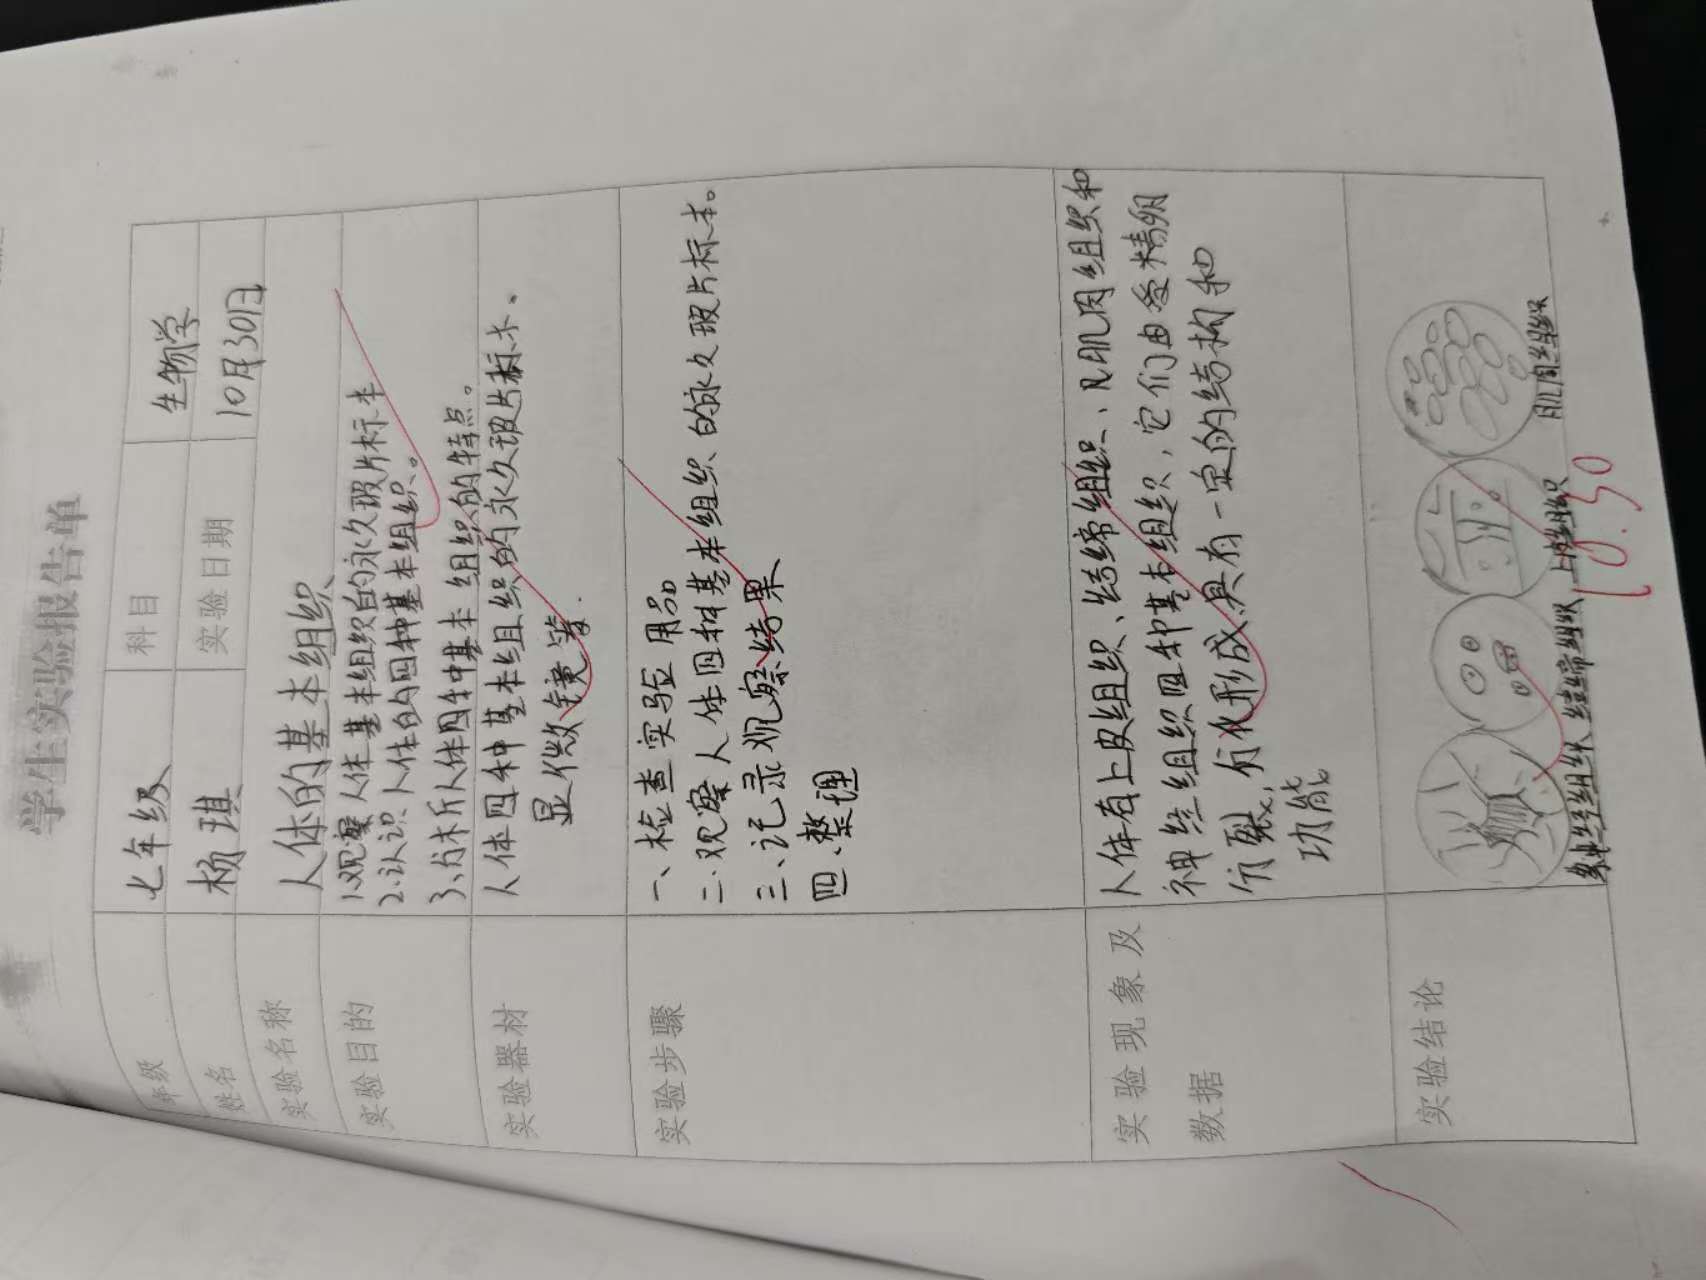 学生实验报告单
年级 七年级 科目 生物学
姓名 杨琪 实验日期 10月30日
实验名称 人体的基本组织
实验目的 1.观察人体基本组织的永久玻片标本
2.认识人体的四种基本组织。
3.分析人体四种基本组织的特点。
实验器材 人体四种基本组织的永久玻片标本。
显微镜等.
实验步骤 一、检查实验用品
二、观察人体四种基本组织的永久玻片标本。
三、记录观察结果
四、整理
实验现象及 人体有上皮组织、结缔组织、肌肉组织和
数据 神经组织四种基本组织,它们由受精卵
分裂,分化形成,具有一定的结构和
功能
实验结论
神经组织 结缔组织 上皮组织 肌肉组织
10.30